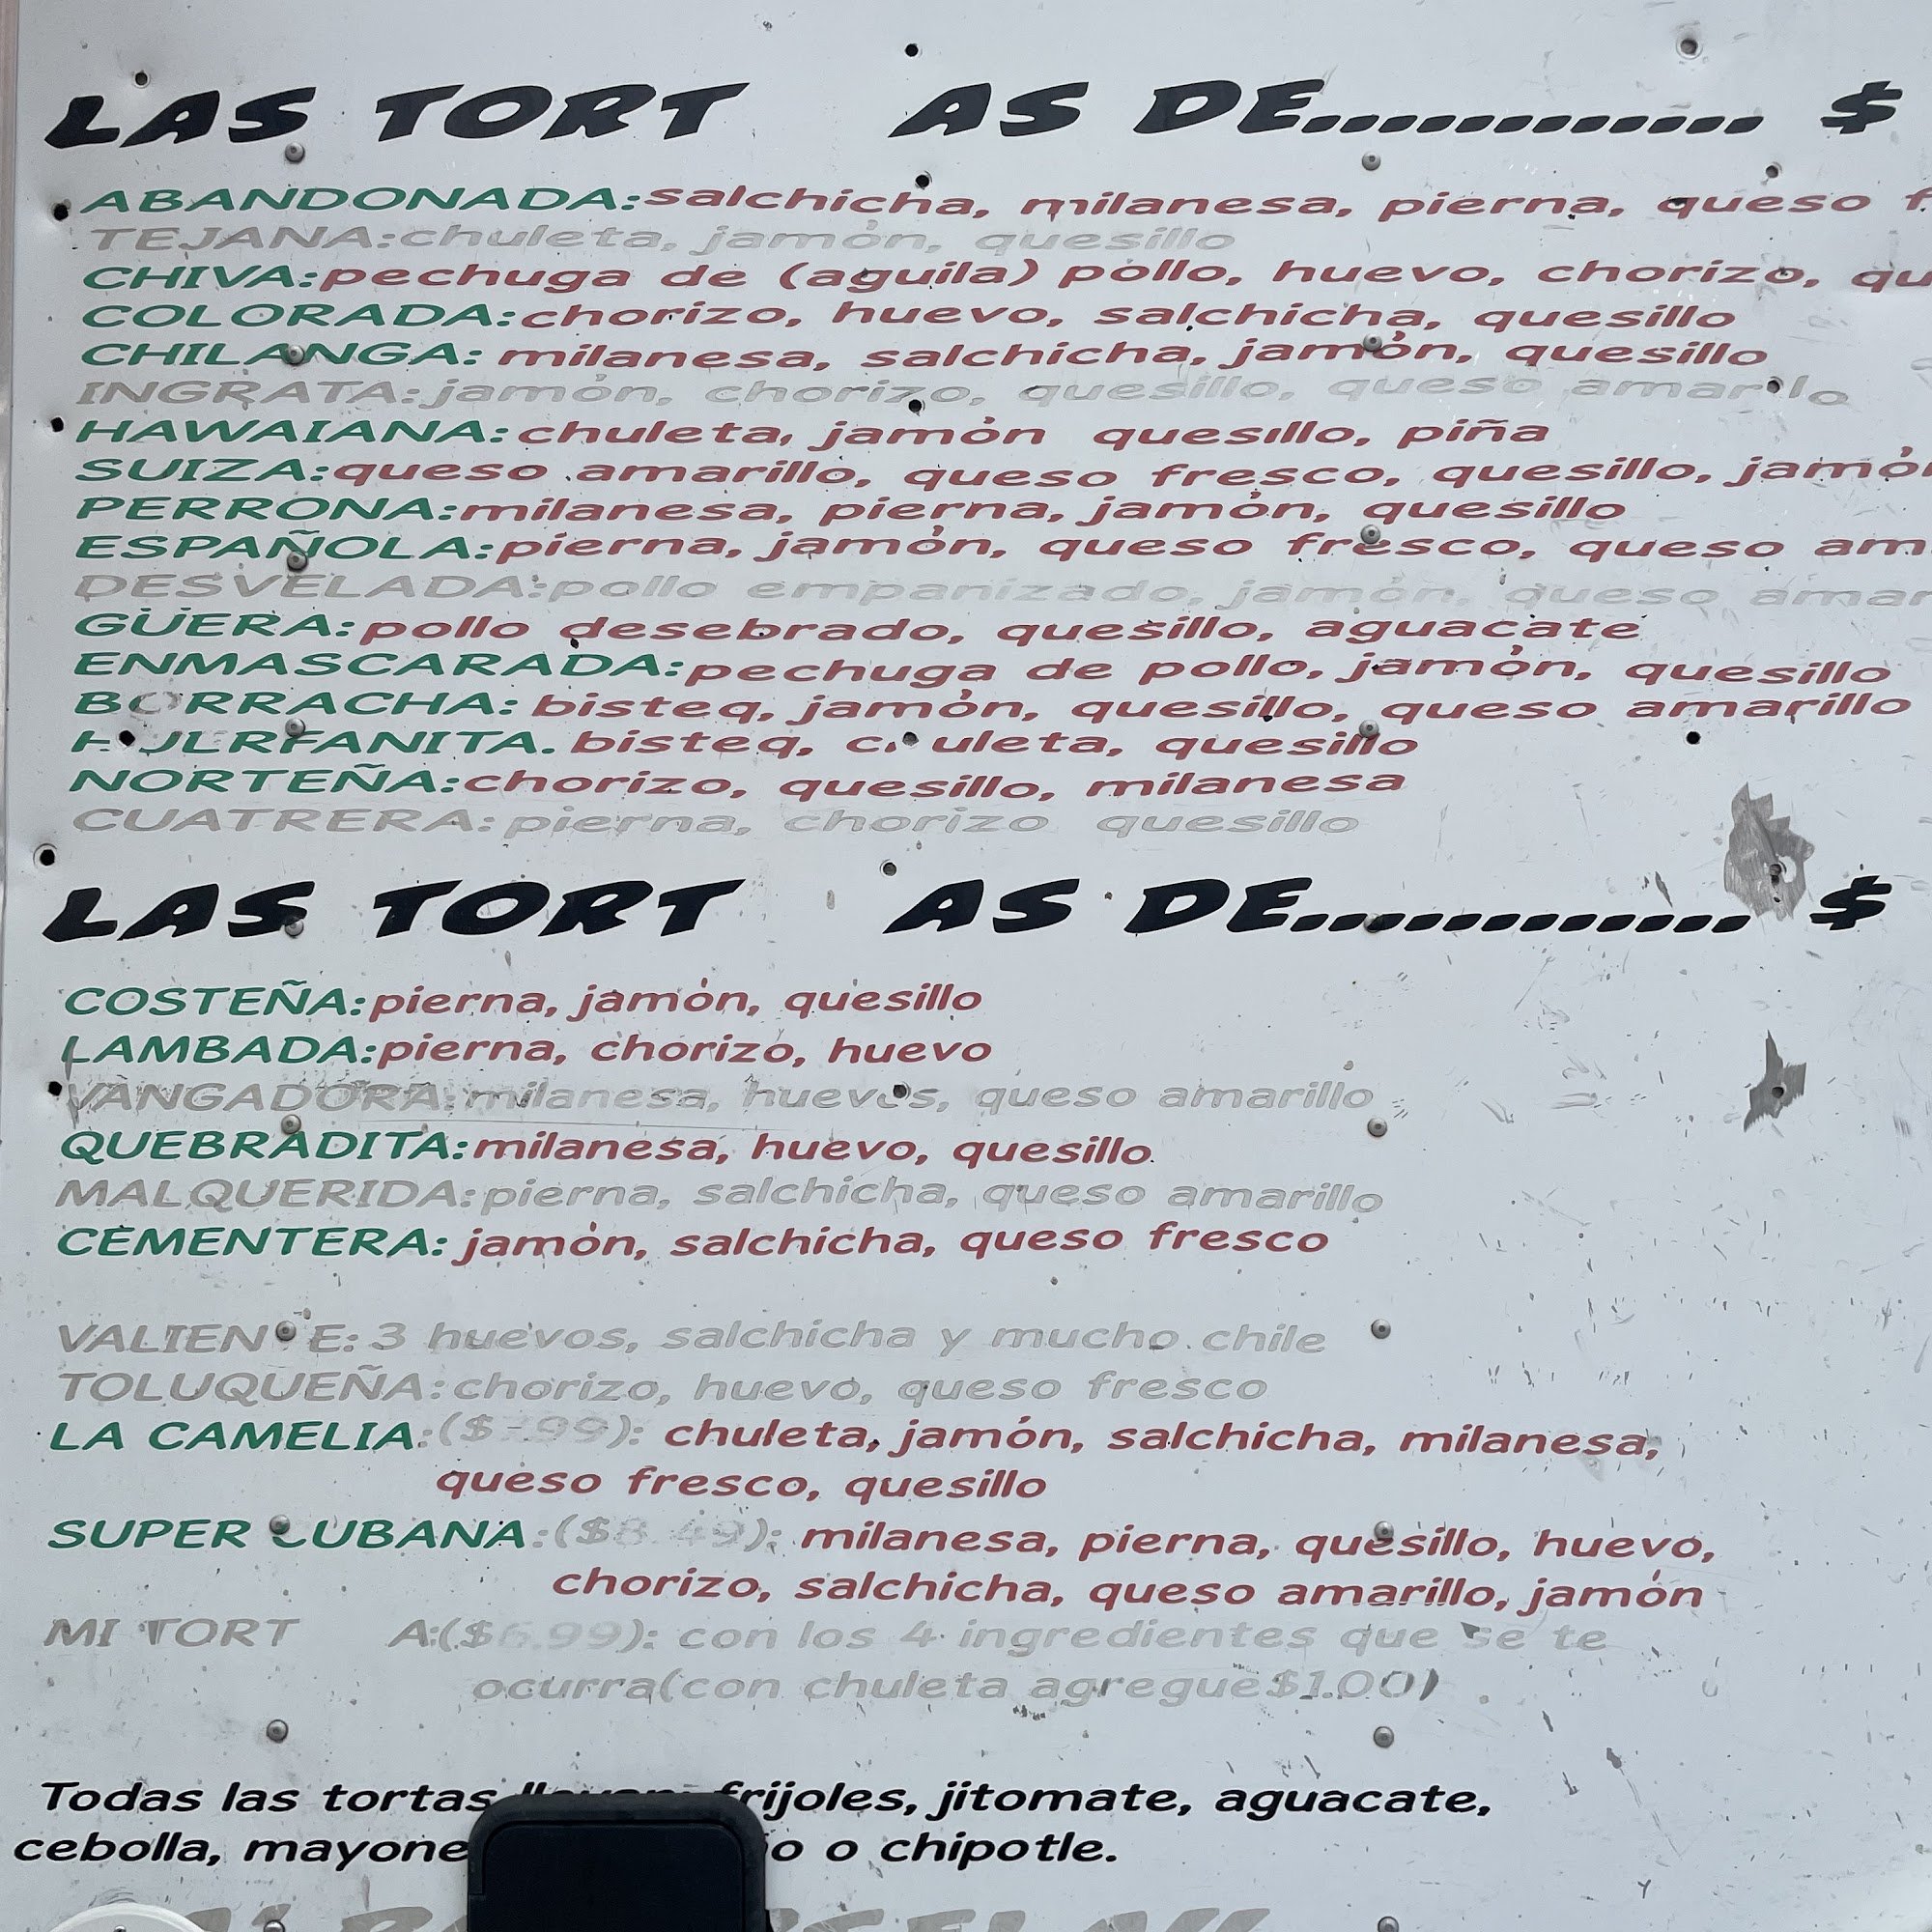 LAS TORT AS DE............ $
ABANDONADA:salchicha, milanesa, pierna, queso f
TEJANA:chuleta, jamón, quesillo
CHIVA:pechuga de (aguila) pollo, huevo, chorizo, qu
COLORADA:chorizo, huevo, salchicha, quesillo
CHILANGA: milanesa, salchicha, jamón, quesillo
INGRATA:jamón, chorizo, quesillo, queso amarillo
HAWAIANA:chuleta, jamón quesillo, piña
SUIZA:queso amarillo, queso fresco, quesillo, jamón
PERRONA:milanesa, pierna, jamón, quesillo
ESPAÑOLA:pierna, jamón, queso fresco, queso am
DESVELADA:pollo empanizado, jamón, queso amar
GÜERA:pollo desebrado, quesillo, aguacate
ENMASCARADA:pechuga de pollo, jamón, quesillo
BORRACHA: bisteq, jamón, quesillo, queso amarillo
HUERFANITA: bisteq, chuleta, quesillo
NORTEÑA:chorizo, quesillo, milanesa
CUATRERA:pierna, chorizo quesillo
LAS TORT AS DE............ $
COSTEÑA:pierna, jamón, quesillo
LAMBADA:pierna, chorizo, huevo
VANGADORA:milanesa, huevos, queso amarillo
QUEBRADITA:milanesa, huevo, quesillo
MALQUERIDA:pierna, salchicha, queso amarillo
CEMENTERA: jamón, salchicha, queso fresco
VALIENTE: 3 huevos, salchicha y mucho chile
TOLUQUEÑA:chorizo, huevo, queso fresco
LA CAMELIA: chuleta, jamón, salchicha, milanesa,
queso fresco, quesillo
SUPER CUBANA:($8.49): milanesa, pierna, quesillo, huevo,
chorizo, salchicha, queso amarillo, jamón
MI TORT A:($6.99): con los 4 ingredientes que se te
ocurra(con chuleta agregue$1.00)
Todas las tortas llevan: frijoles, jitomate, aguacate,
cebolla, mayone o o chipotle.